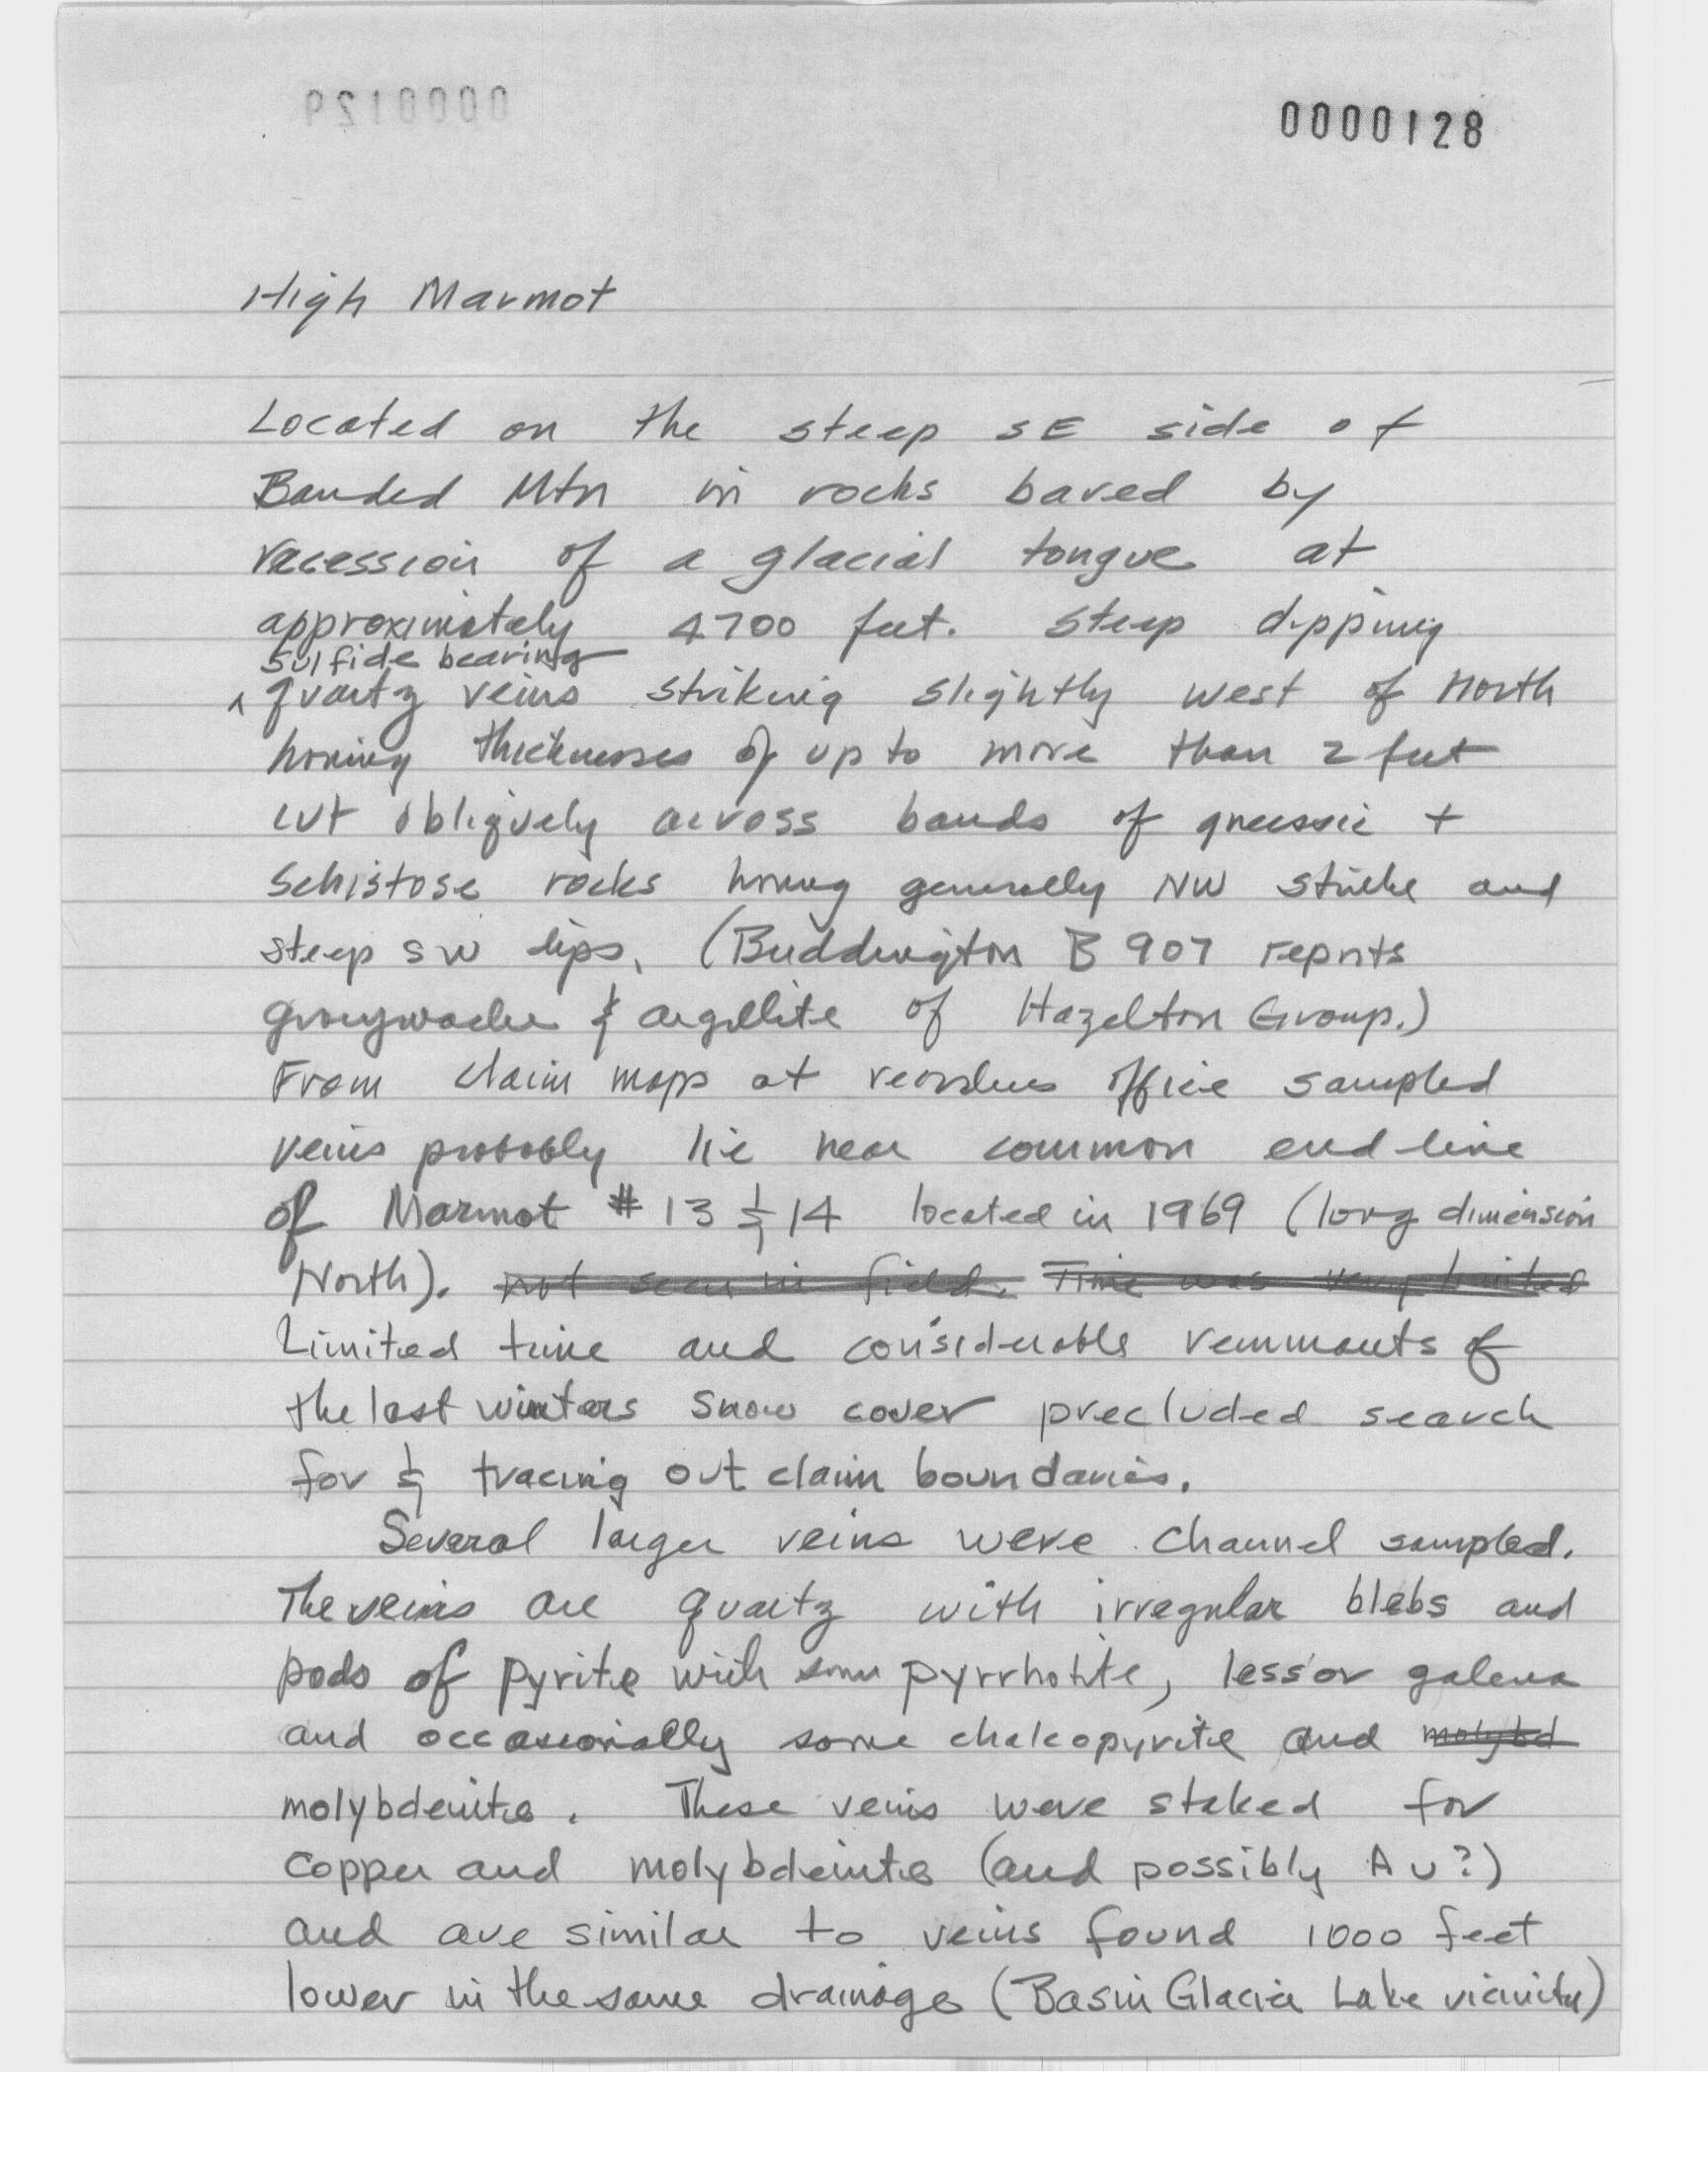 0000129
0000128
High Marmot
Located on the steep SE side of
Banded Mtn in rocks bared by
recession of a glacial tongue at
approximately 4700 feet. Steep dipping
sulfide bearing
^ quartz veins striking slightly west of North
having thicknesses of up to more than 2 feet
cut obliquely across bands of gneissic +
schistose rocks having generally NW strike and
steep SW dips. (Buddington B 907 reports
graywacke & argillite of Hazelton Group.)
From claim maps at recorders office sampled
veins probably lie near common end line
of Marmot # 13 & 14 located in 1969 (long dimension
North). not seen in field. Time was very limited
Limited time and considerable remnants of
the last winters snow cover precluded search
for & tracing out claim boundaries.
Several larger veins were channel sampled.
The veins are quartz with irregular blebs and
pods of pyrite with some pyrrhotite, lessor galena
and occasionally some chalcopyrite and molybd
molybdenite. These veins were staked for
copper and molybdenite (and possibly Au?)
and are similar to veins found 1000 feet
lower in the same drainage (Basin Glacier Lake vicinity)